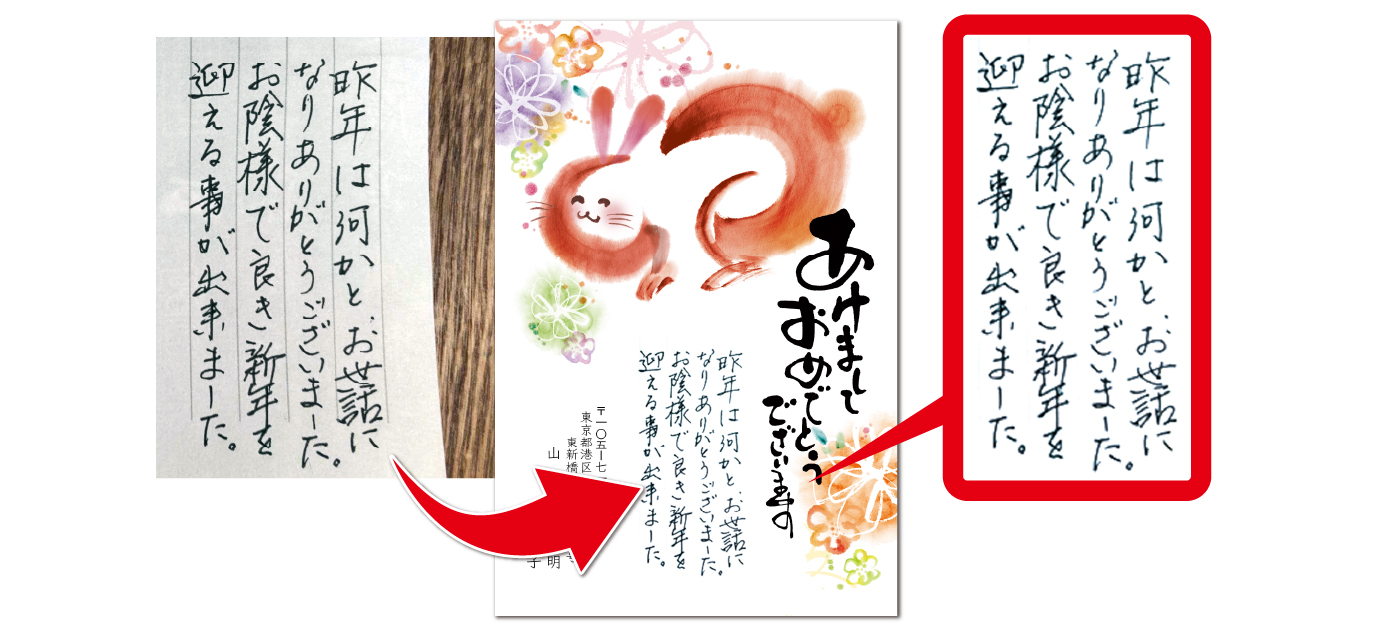 昨年は何かとお世話に
なりありがとうございました。
お陰様で良き新年を
迎える事が出来ました。
あけまして
おめでとう
ございます
昨年は何かとお世話に
なりありがとうございました。
お陰様で良き新年を
迎える事が出来ました。
〒一〇五ー七
東京都港区
東新橋
山
明
子
昨年は何かとお世話に
なりありがとうございました。
お陰様で良き新年を
迎える事が出来ました。